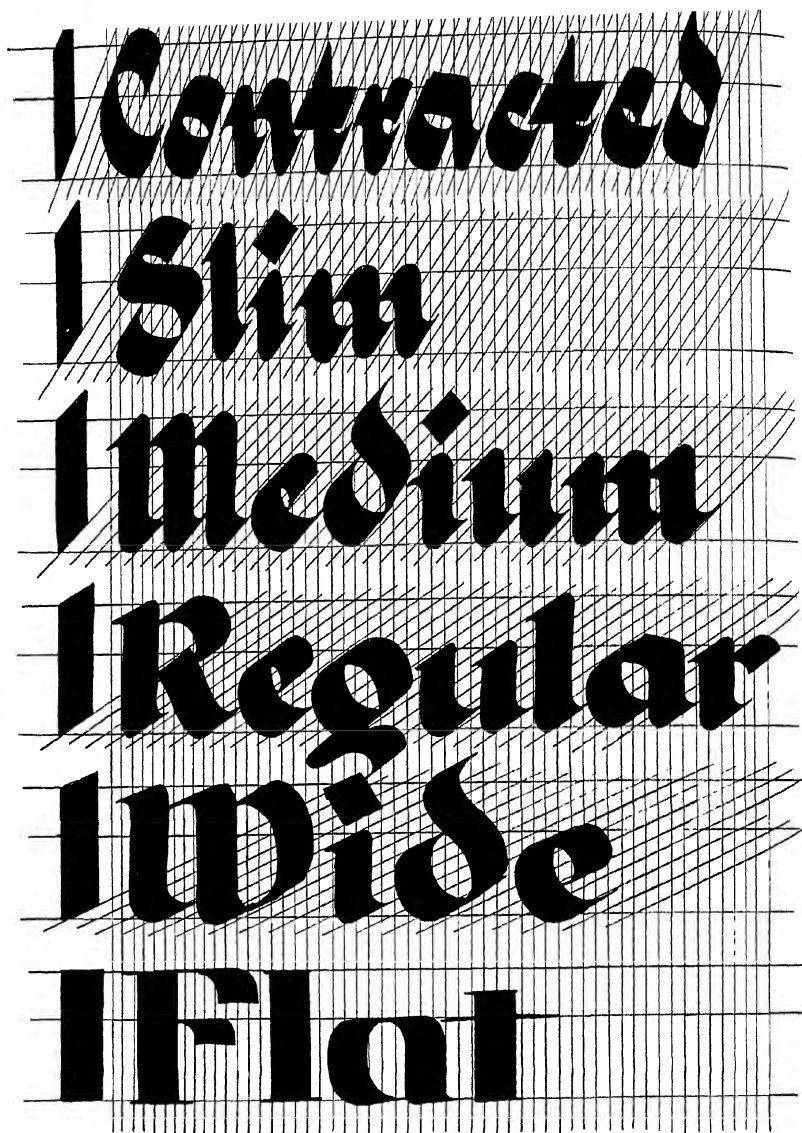 Contracted
Slim
Medium
Regular
Wide
Flat